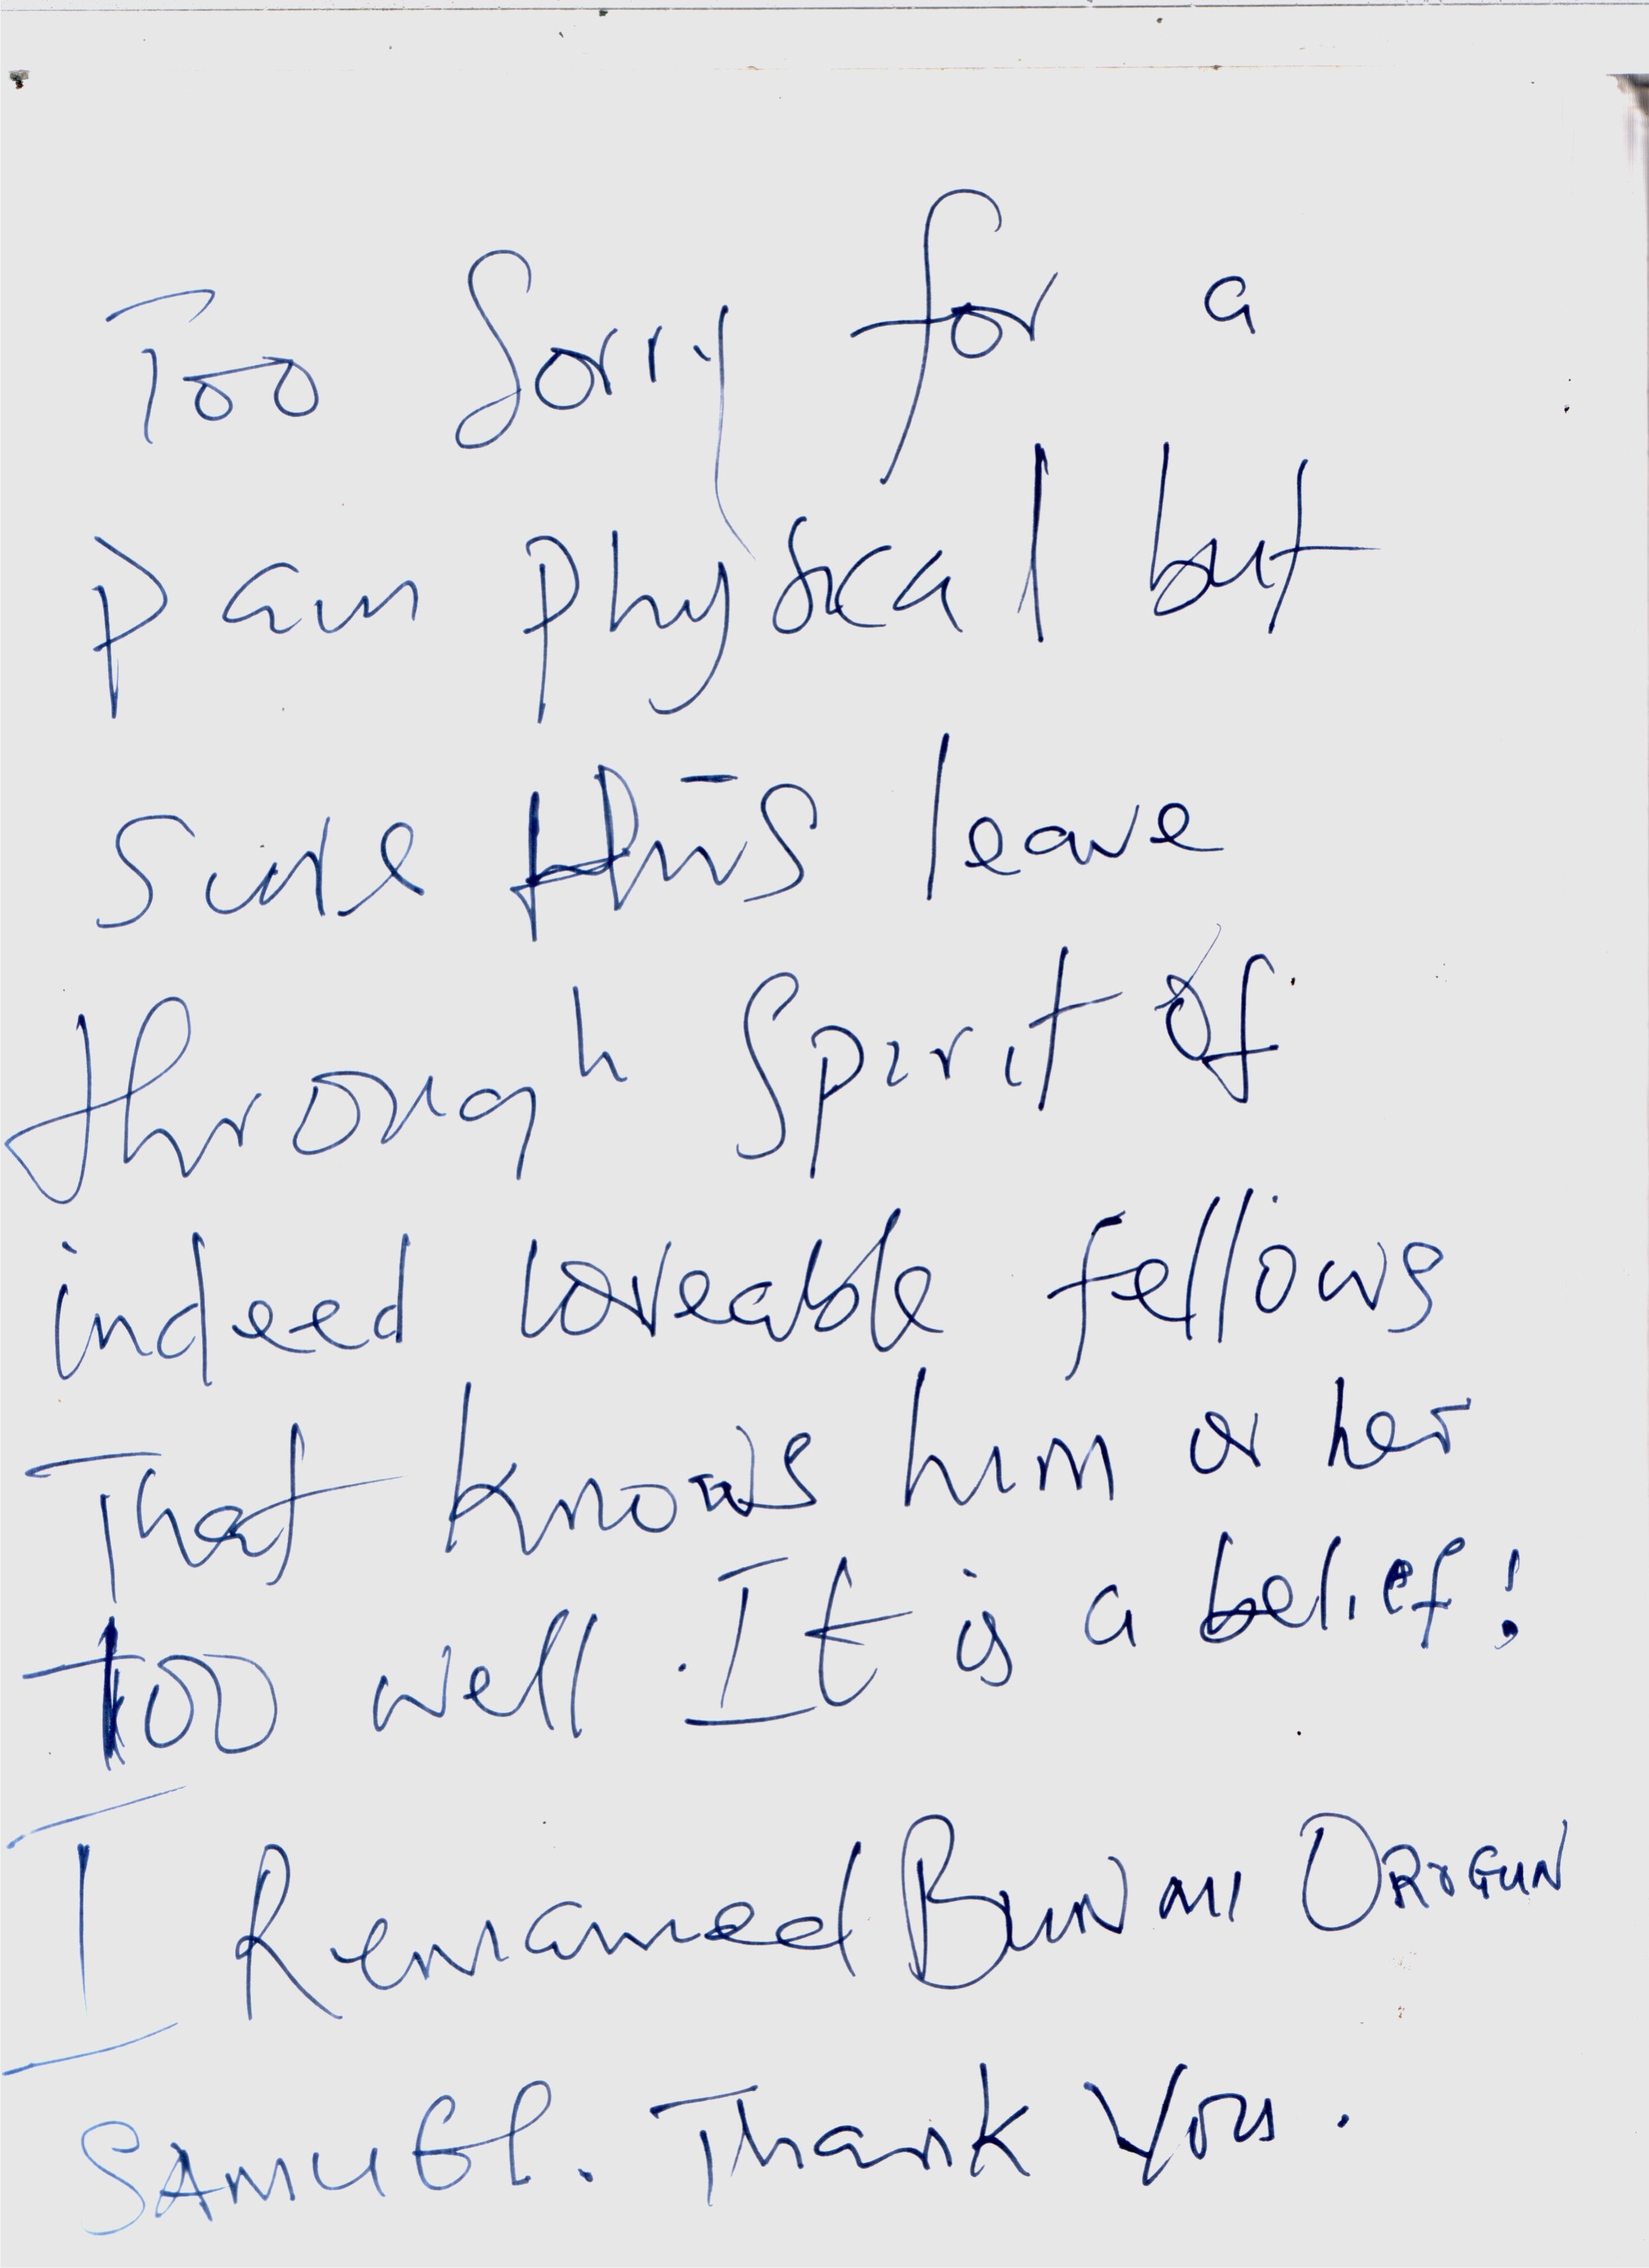 Too Sorry for a
pain physical but
Sure this leave
through Spirit of
indeed loveable fellows
That knows him or her
too well. It is a belief!
I Remained BUNMI OROGUN
SAMUEL. Thank You.